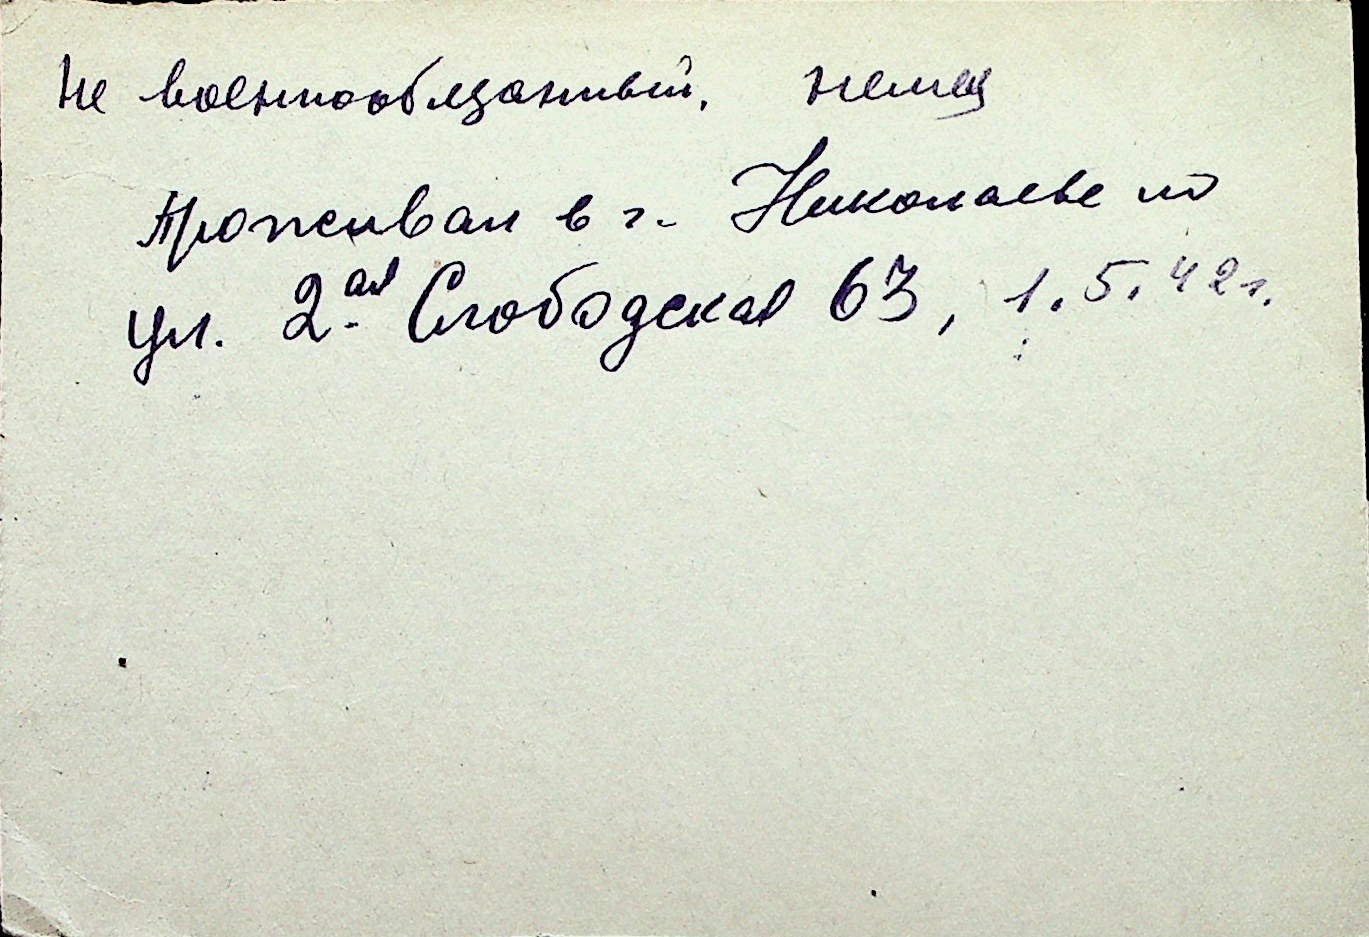 Не военнообязанный. немец
Проживал в г. Николаеве по
ул. 2ая Слободская 63, 1.5.42г.